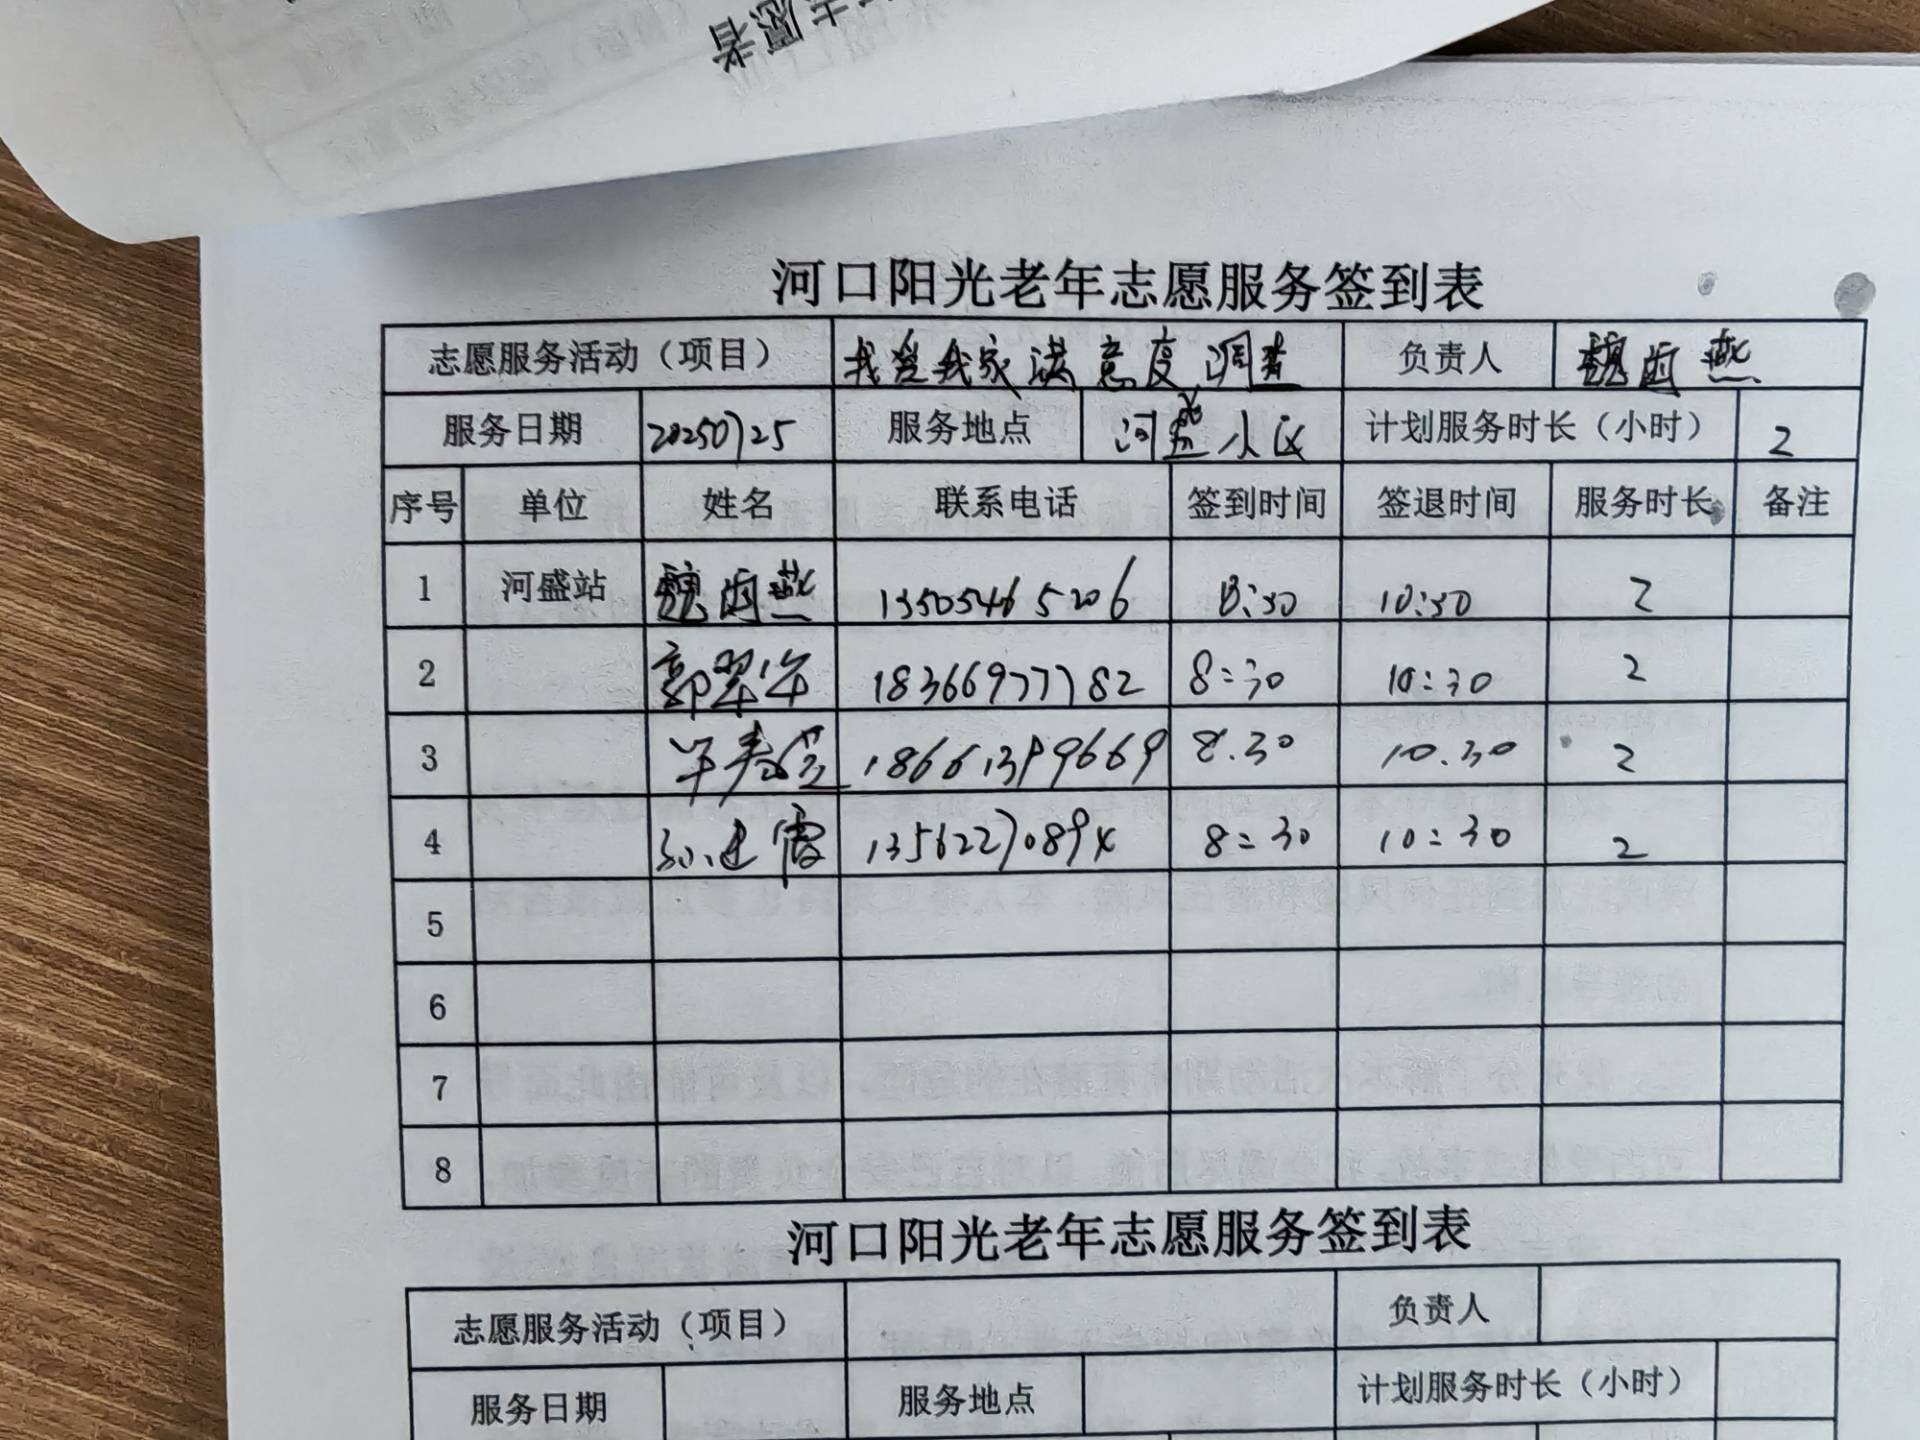 志愿者
河口阳光老年志愿服务签到表
志愿服务活动（项目） 我爱我家满意度调查 负责人 魏 燕
服务日期 20250725 服务地点 河盛小区 计划服务时长（小时） 2
序号 单位 姓名 联系电话 签到时间 签退时间 服务时长 备注
1 河盛站 魏 燕 13505465206 8:30 10:30 2
2 郭翠 18366977782 8:30 10:30 2
3 18661399669 8.30 10.30 2
4 1356227089 8:30 10:30 2
5
6
7
8
河口阳光老年志愿服务签到表
志愿服务活动（项目） 负责人
服务日期 服务地点 计划服务时长（小时）